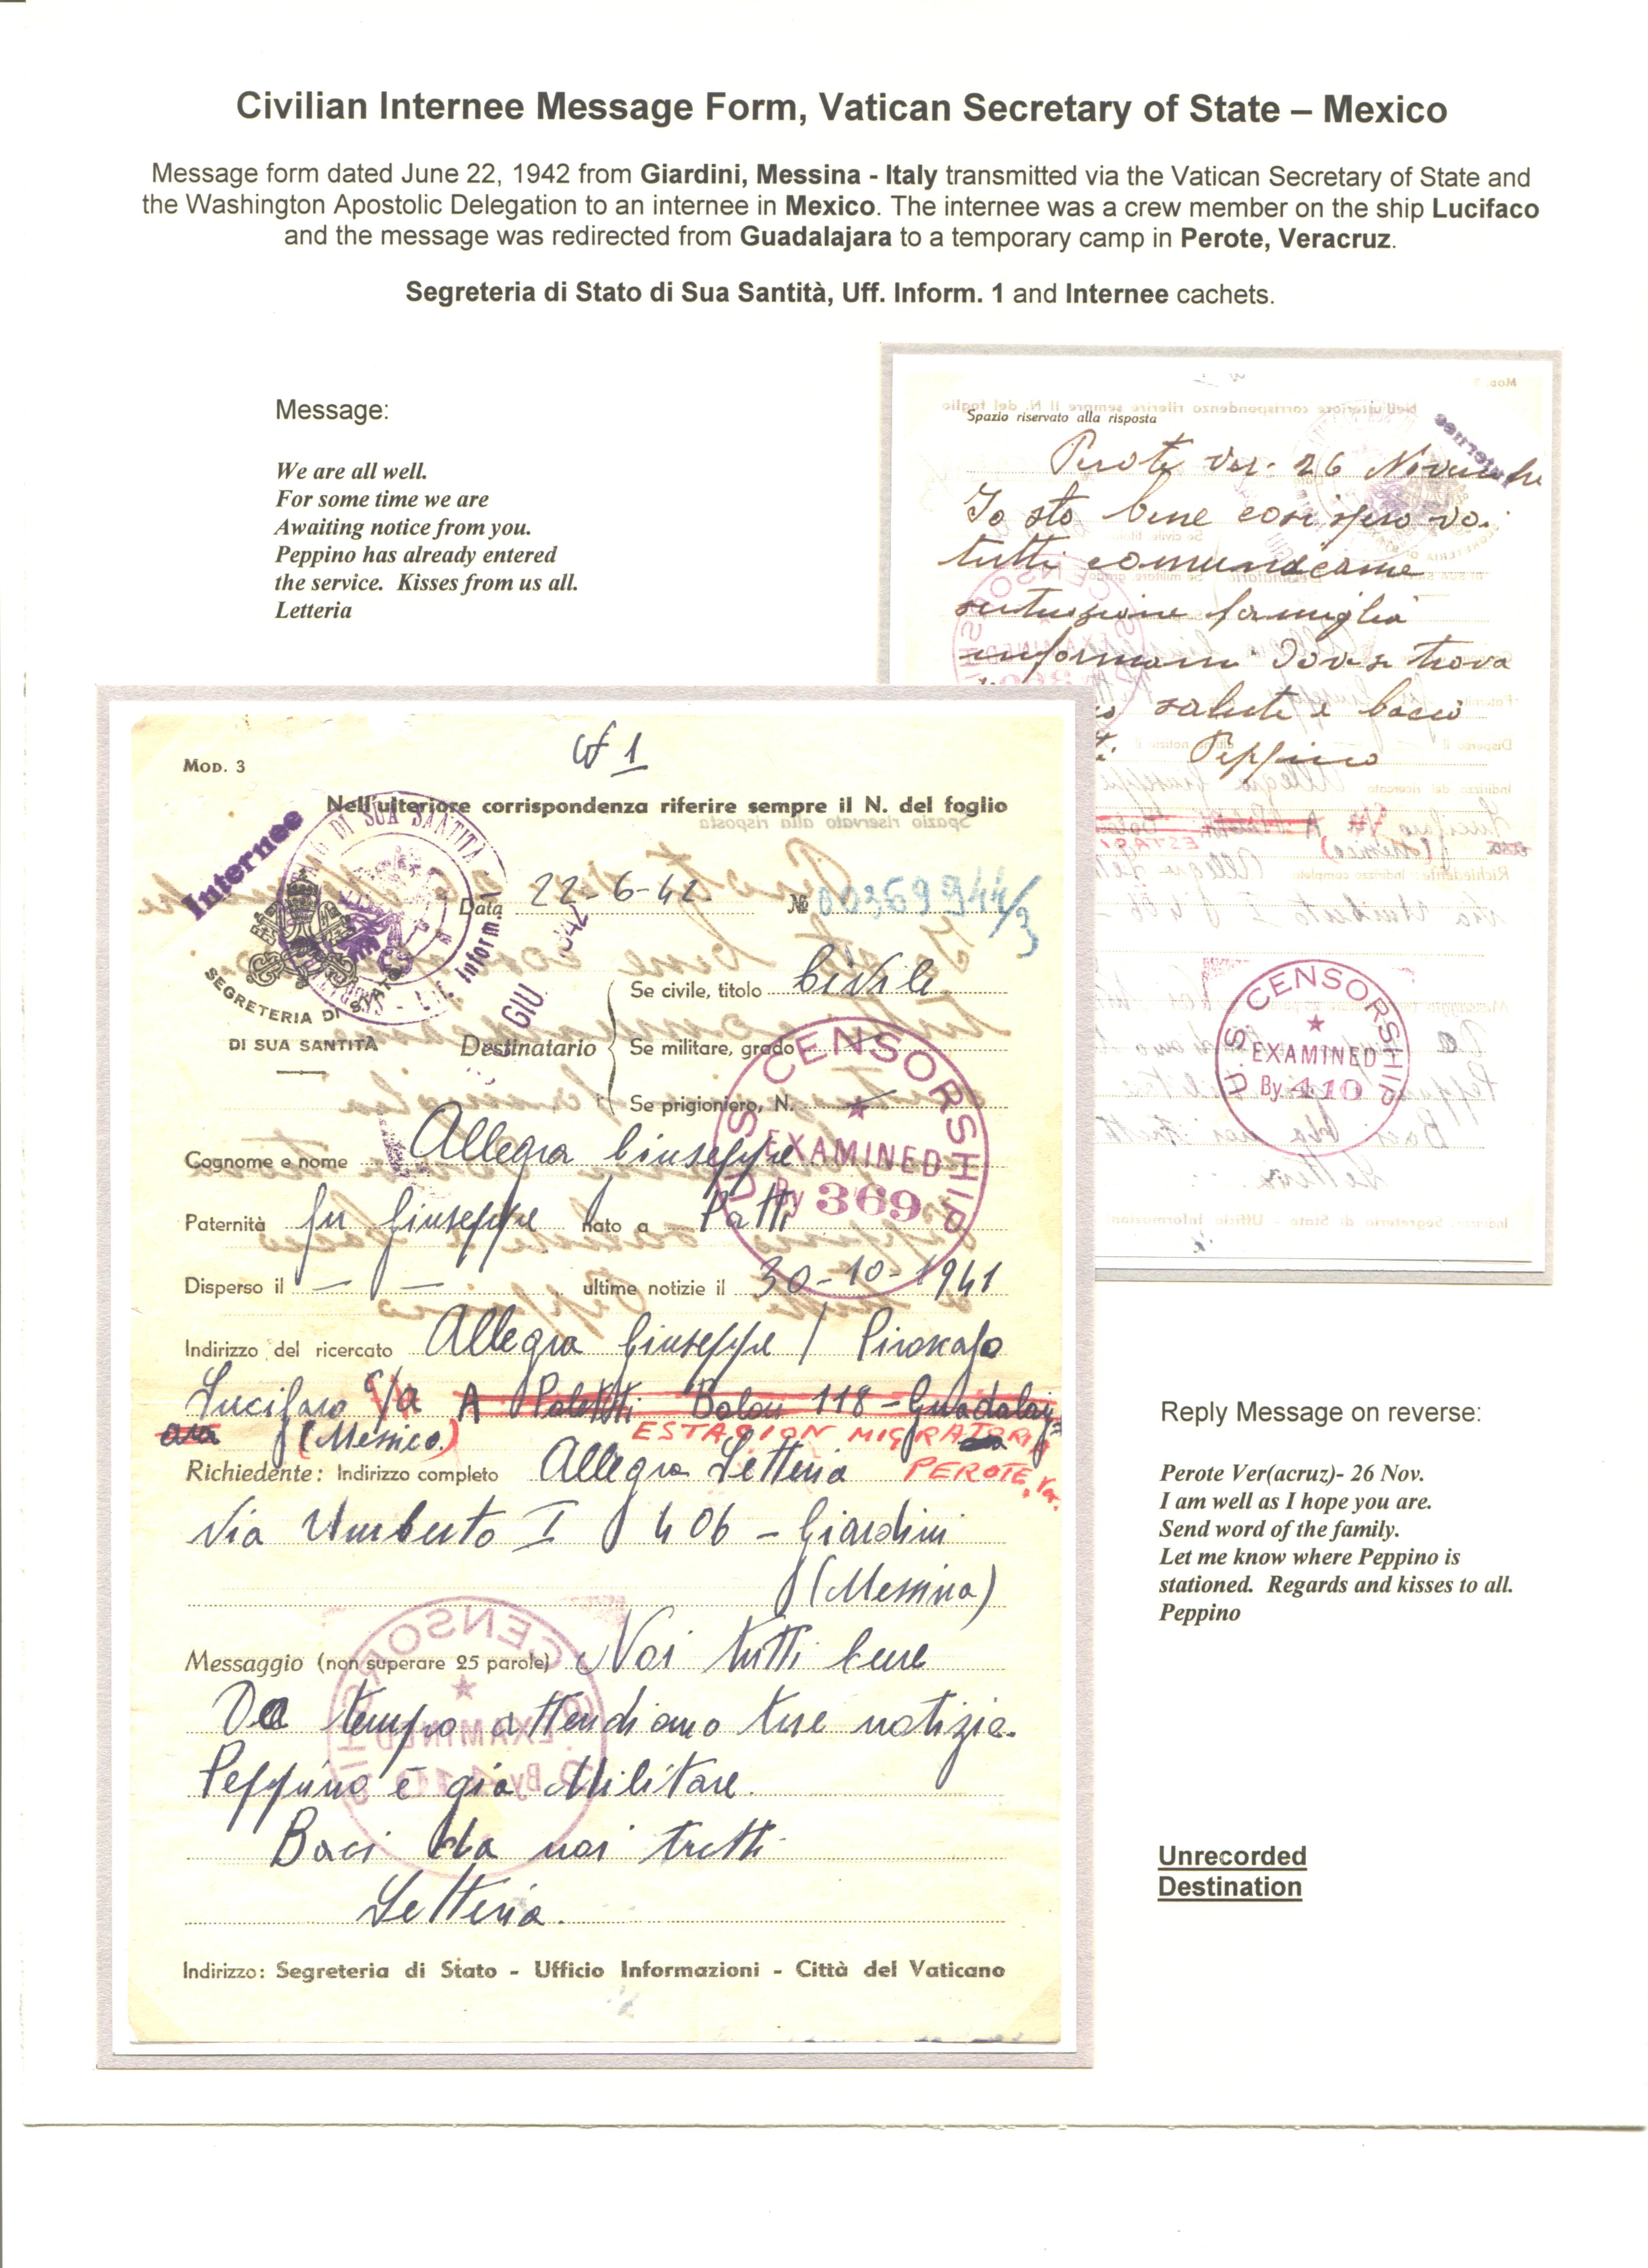 Civilian Internee Message Form, Vatican Secretary of State – Mexico
Message form dated June 22, 1942 from Giardini, Messina - Italy transmitted via the Vatican Secretary of State and
the Washington Apostolic Delegation to an internee in Mexico. The internee was a crew member on the ship Lucifaco
and the message was redirected from Guadalajara to a temporary camp in Perote, Veracruz.
Segreteria di Stato di Sua Santità, Uff. Inform. 1 and Internee cachets.
Message:
We are all well.
For some time we are
Awaiting notice from you.
Peppino has already entered
the service. Kisses from us all.
Letteria
Spazio riservato alla risposta
Internee
Perote Ver. 26 Novembre
Io sto bene cosi spero voi
tutti comunicame
situazione famiglia
informami dove si trova
salute e bacio
Peppino
U.S. CENSORSHIP
EXAMINED
By 410
MOD. 3
N 1
Nell'ulteriore corrispondenza riferire sempre il N. del foglio
Internee
Data 22-6-42. No 00369944/3
SEGRETERIA DI STATO
DI SUA SANTITÀ
GIU 1942
Destinatario
Se civile, titolo Civile
Se militare, grado
Se prigioniero, N.
U.S. CENSORSHIP
EXAMINED
By 369
Cognome e nome Allegra Giuseppe
Paternità fu Giuseppe nato a Patti
Disperso il — — ultime notizie il 30-10-1941
Indirizzo del ricercato Allegra Giuseppe / Piroscafo
Lucifaro c/a A Poletti Bolou 118 - Guadalaj=
ara (Messico)
ESTACION MIGRATORIA
PEROTE, Ver.
Richiedente: Indirizzo completo Allegra Letteria
Via Umberto I 406 - Giardini
(Messina)
Messaggio (non superare 25 parole) Noi tutti bene
Da tempo attendiamo tue notizie.
Peppino è già Militare.
Baci da noi tutti
Letteria.
Indirizzo: Segreteria di Stato - Ufficio Informazioni - Città del Vaticano
Reply Message on reverse:
Perote Ver(acruz)- 26 Nov.
I am well as I hope you are.
Send word of the family.
Let me know where Peppino is
stationed. Regards and kisses to all.
Peppino
Unrecorded
Destination